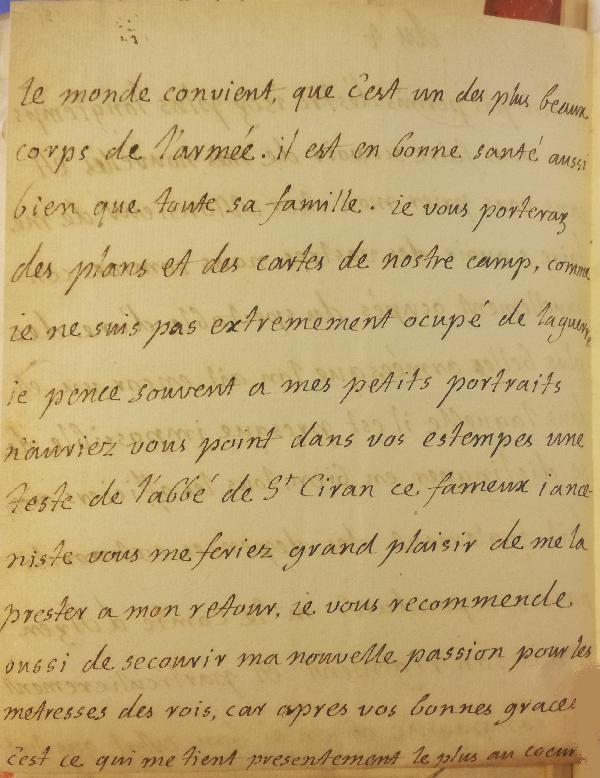 le monde convient, que c'est un des plus beaux
corps de l'armée. il est en bonne santé aussi
bien que toute sa famille. ie vous porteray
des plans et des cartes de nostre camp, comme
ie ne suis pas extremement ocupé de la guerre
ie pence souvent a mes petits portraits
n'auriez vous point dans vos estempes une
teste de l'abbé de St Ciran ce fameux ianse-
niste vous me feriez grand plaisir de me la
prester a mon retour, ie vous recommende
aussi de secourir ma nouvelle passion pour les
metresses des rois, car apres vos bonnes graces
c'est ce qui me tient presentement le plus au coeur